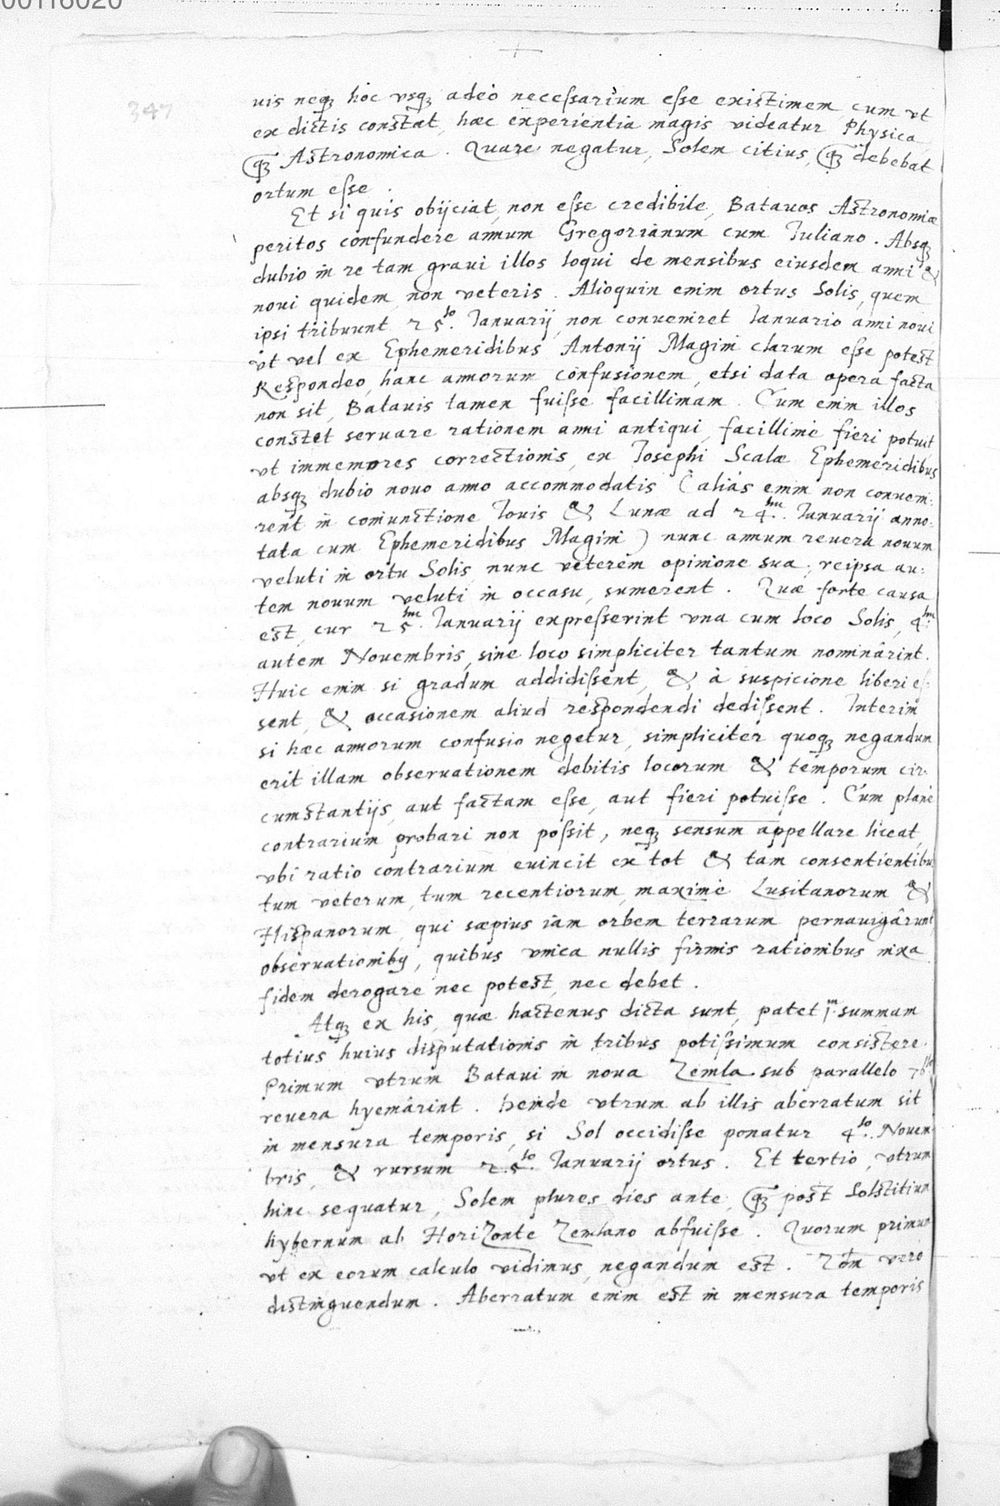 00116020
347
uis neq₃ hoc vsq₃ adeò necessarium esse existimem cum vt
ex dictis constat, hæc experientia magis videatur Physica,
q̃₃ Astronomica. Quare negatur, Solem citius, q̃₃ debebat
ortum esse.
Et si quis obijciat, non esse credibile, Batauos Astronomiæ
peritos confundere annum Gregorianum cum Iuliano. Absq₃
dubio in re tam graui illos loqui de mensibus eiusdem anni &
noui quidem, non veteris. Alioquin enim ortus Solis, quem
ipsi tribuunt 25to. Ianuarij, non conueniret Ianuario anni noui
vt vel ex Ephemeridibus Antonij Magini clarum esse potest
Respondeo, hanc annorum confusionem, etsi data opera facta
non sit, Batauis tamen fuisse facillimam. Cum enim illos
constet seruare rationem anni antiqui, facillimè fieri potuit
vt immemores correctionis, ex Iosephi Scalæ Ephemeridibus
absq₃ dubio nouo anno accommodatis (aliàs enim non conueni:
rent in coniunctione Iouis & Lunæ ad 24tm. Ianuarij anno:
tata cum Ephemeridibus Magini) nunc annum reuera nouum
veluti in ortu Solis, nunc veterem opinione sua, reipsa au:
tem nouum veluti in occasu, sumerent. Quæ forte causa
est, cur 25tm. Ianuarij expresserint vna cum loco Solis, 4tm.
autem Nouembris, sine loco simpliciter tantum nominârint.
Huic enim si gradum addidissent, & à suspicione liberi es:
sent, & occasionem aliud respondendi dedissent. Interim
si hæc annorum confusio negetur, simpliciter quoq₃ negandum
erit illam obseruationem debitis locorum & temporum cir:
cumstantijs, aut factam esse, aut fieri potuisse. Cùm planè
contrarium probari non possit, neq₃ sensum appellare liceat,
vbi ratio contrarium euincit ex tot & tam consentientibus
tum veterum, tum recentiorum, maximè Lusitanorum &
Hispanorum, qui sæpius iam orbem terrarum pernauigârunt
obseruationiby, quibus vnica nullis firmis rationibus nixa
fidem derogare nec potest, nec debet.
Atq₃ ex his, quæ hactenus dicta sunt, patet summam
totius huius disputationis in tribus potissimum consistere.
Primum vtrum Bataui in noua Zemla sub parallelo 76
reuera hyemârint. Deinde vtrum ab illis aberratum sit
in mensura temporis, si Sol occidisse ponatur 4to. Nouem
bris, & rursum 25to. Ianuarij ortus. Et tertio, vtrum
hinc sequatur, Solem plures dies ante, q̃₃ post Solstitium
hybernum ab Horizonte Zemlano abfuisse. Quorum primum
vt ex eorum calculo vidimus, negandum est. 2dm vero
distinguendum. Aberratum enim est in mensura temporis